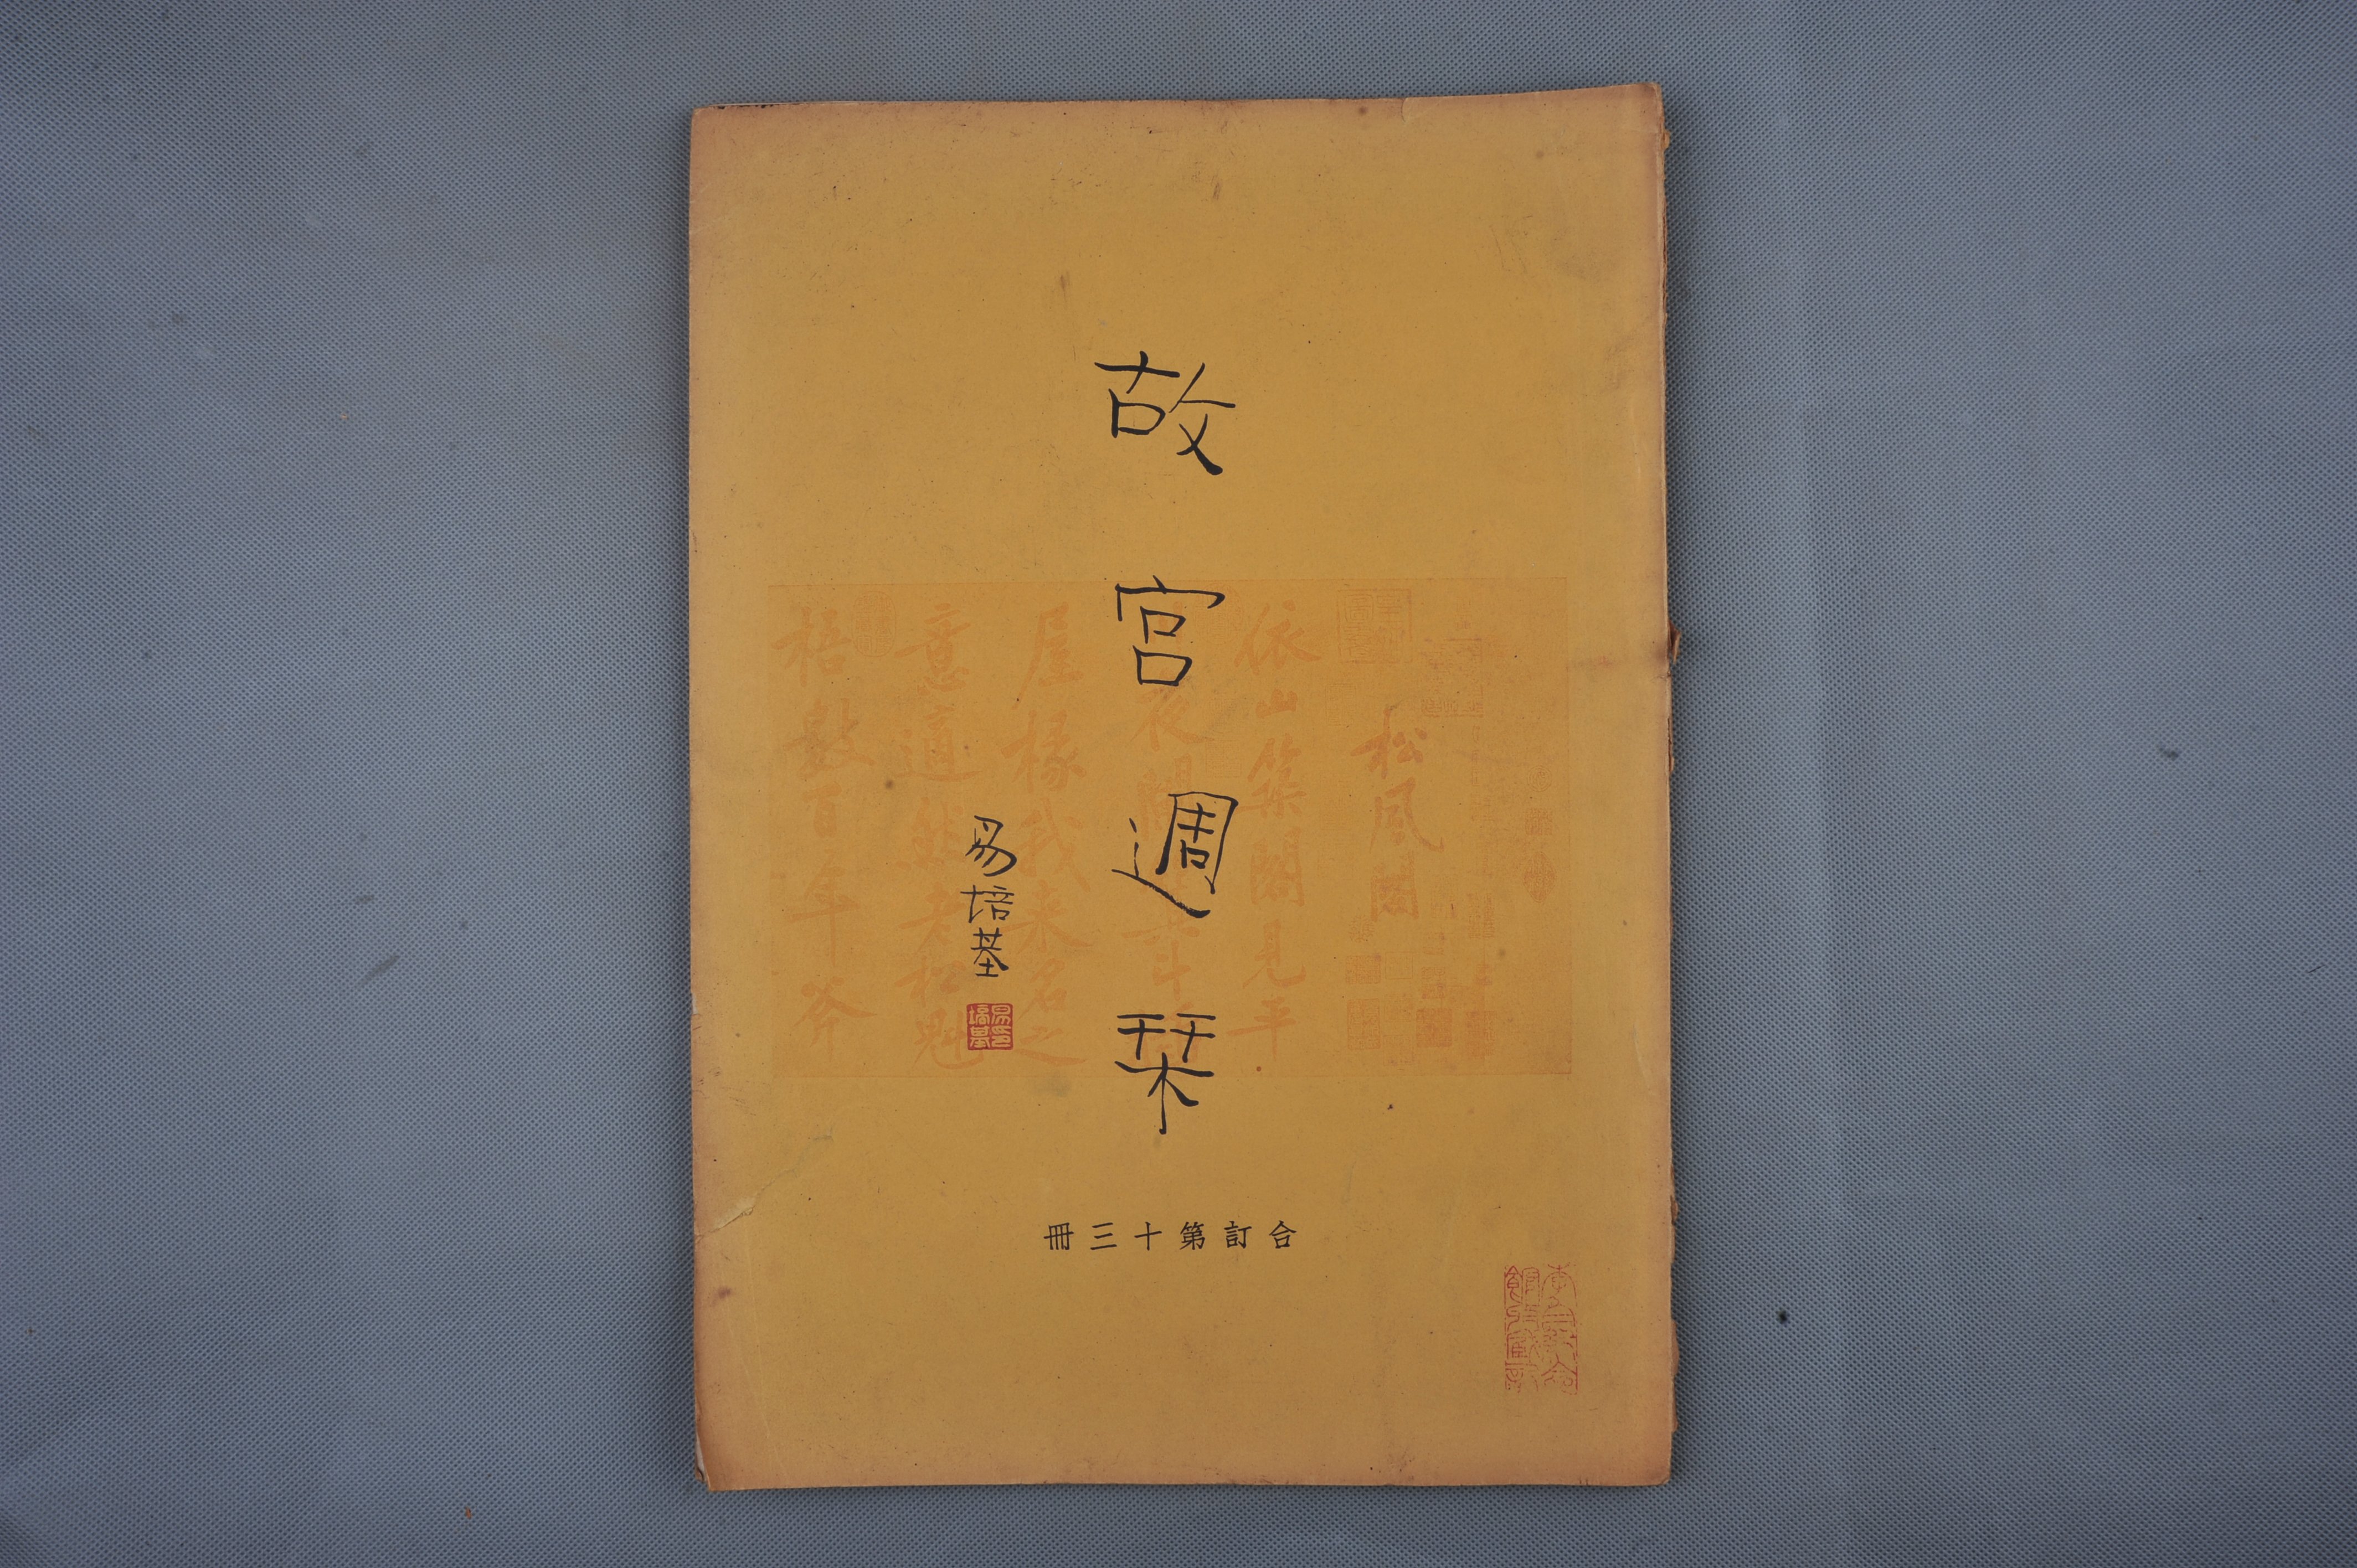 故宮週栞
易培基
易培基印
合訂第十三冊
松風閣
依山築閣見平
屋椽我来名之
意適然老松魁
梧數百年斧